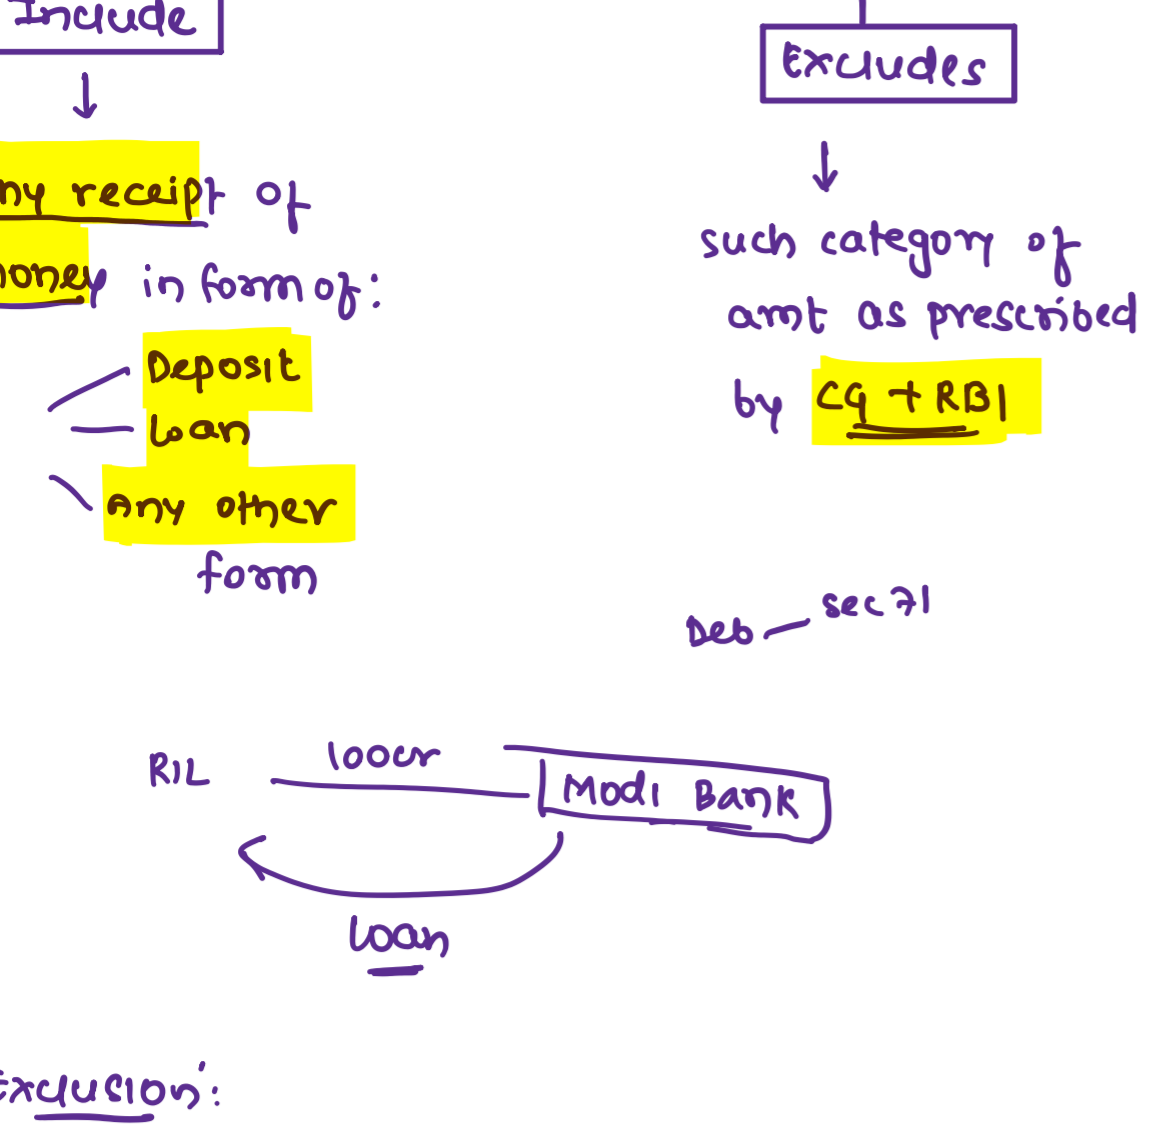 Include
Excludes
ny receipt of
oney in form of:
Deposit
Loan
Any other
form
such category of
amt as prescribed
by CG + RBI
Deb - sec 71
RIL 100cr Modi Bank
loan
Exclusion: